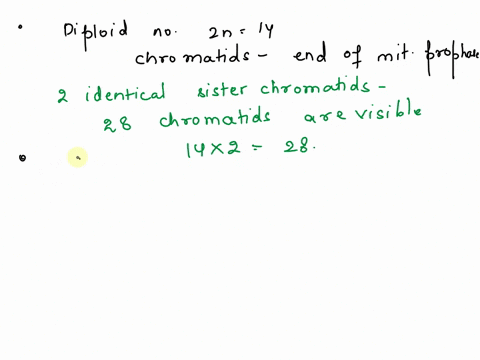 Diploid no. 2n = 14
chromatids - end of mit. prophase
2 identical sister chromatids -
28 chromatids are visible
14 × 2 = 28.